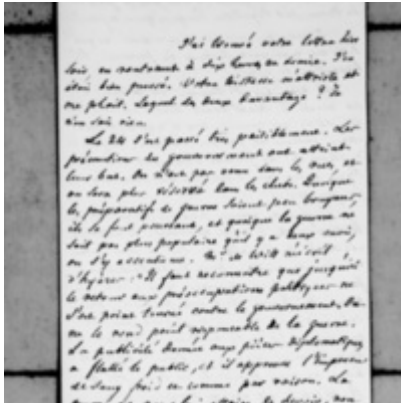 J'ai trouvé votre lettre hier
soir en rentrant à dix heures et demie. J'en
étais bien pressé. Votre tristesse m'attriste et
me plait. Lequel des deux davantage ? Je
n'en sais rien.
Le 24 s'est passé très paisiblement. Les
précautions du gouvernement ont atteint
leur but. On n'est pas venu dans les rues, et
on sera plus réservé dans les clubs. Quoique
les préparatifs de guerre soient peu bruyans,
ils se font pourtant, et quoique la guerre ne
soit pas plus populaire qu'il y a deux mois,
on s'y accoutume. Mr de Witt m'écrit
d'hyères : "Il faut reconnaître que jusqu'ici
le retour aux préoccupations politiques ne
s'est point tourné contre le gouvernement. On
ne le rend point responsable de la guerre.
La publicité donnée aux pièces diplomatiques
a flatté le public, et il approuve l'Empereur
de sang froid et comme par raison. La